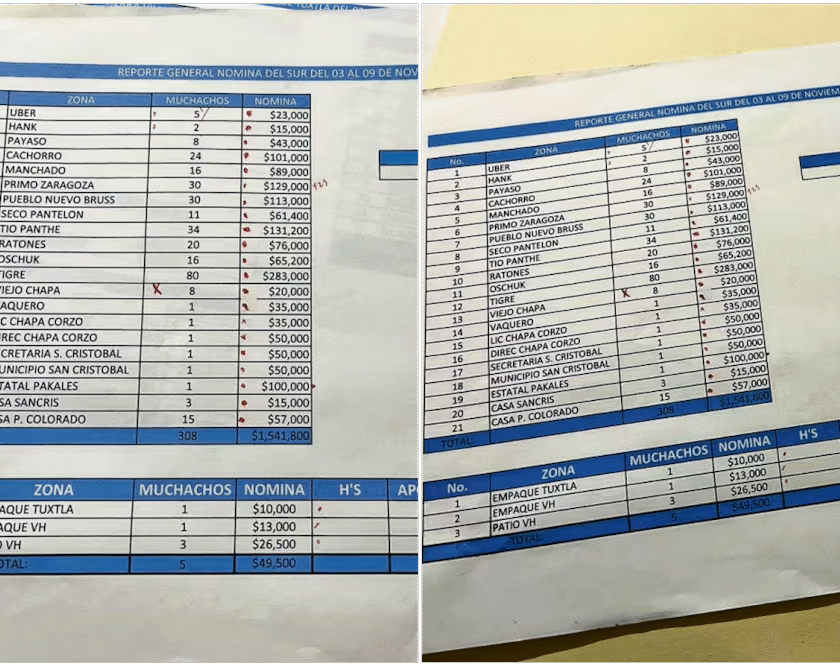 REPORTE GENERAL NOMINA DEL SUR DEL 03 AL 09 DE NOV
ZONA MUCHACHOS NOMINA
UBER 5 $23,000
HANK 2 $15,000
PAYASO 8 $43,000
CACHORRO 24 $101,000
MANCHADO 16 $89,000
PRIMO ZARAGOZA 30 $129,000
PUEBLO NUEVO BRUSS 30 $113,000
SECO PANTELON 11 $61,400
TIO PANTHE 34 $131,200
RATONES 20 $76,000
OSCHUK 16 $65,200
TIGRE 80 $283,000
VIEJO CHAPA X 8 $20,000
VAQUERO 1 $35,000
IC CHAPA CORZO 1 $35,000
IREC CHAPA CORZO 1 $50,000
CRETARIA S. CRISTOBAL 1 $50,000
UNICIPIO SAN CRISTOBAL 1 $50,000
STATAL PAKALES 1 $100,000
SA SANCRIS 3 $15,000
SA P. COLORADO 15 $57,000
308 $1,541,800
ZONA MUCHACHOS NOMINA H'S AP
PAQUE TUXTLA 1 $10,000
AQUE VH 1 $13,000
O VH 3 $26,500
OTAL: 5 $49,500
REPORTE GENERAL NOMINA DEL SUR DEL 03 AL 09 DE NOVIEM
No. ZONA MUCHACHOS NOMINA
1 UBER 5 $23,000
2 HANK 2 $15,000
3 PAYASO 8 $43,000
4 CACHORRO 24 $101,000
5 MANCHADO 16 $89,000
6 PRIMO ZARAGOZA 30 $129,000
7 PUEBLO NUEVO BRUSS 30 $113,000
8 SECO PANTELON 11 $61,400
9 TIO PANTHE 34 $131,200
10 RATONES 20 $76,000
11 OSCHUK 16 $65,200
12 TIGRE 80 $283,000
13 VIEJO CHAPA X 8 $20,000
14 VAQUERO 1 $35,000
15 LIC CHAPA CORZO 1 $35,000
16 DIREC CHAPA CORZO 1 $50,000
17 SECRETARIA S. CRISTOBAL 1 $50,000
18 MUNICIPIO SAN CRISTOBAL 1 $50,000
19 ESTATAL PAKALES 1 $100,000
20 CASA SANCRIS 3 $15,000
21 CASA P. COLORADO 15 $57,000
TOTAL: 308 $1,541,800
No. ZONA MUCHACHOS NOMINA H'S
1 EMPAQUE TUXTLA 1 $10,000
2 EMPAQUE VH 1 $13,000
3 PATIO VH 3 $26,500
TOTAL: 5 $49,500